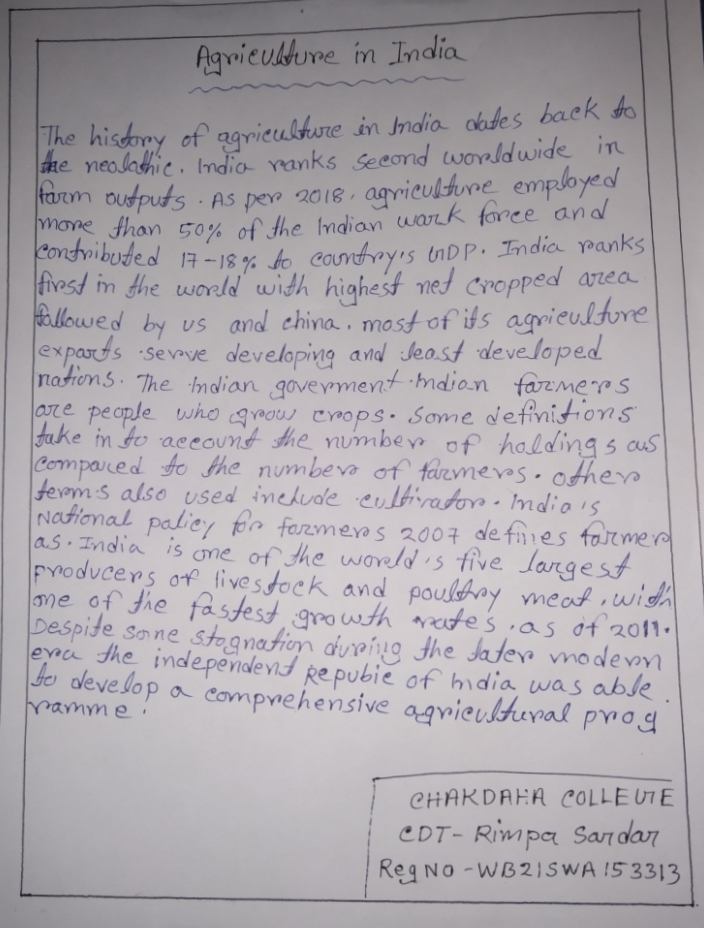 Agriculture in India
The history of agriculture in India dates back to
the neolathic. India ranks second worldwide in
farm outputs. As per 2018, agriculture employed
more than 50% of the Indian work force and
contributed 17-18% to country's GDP. India ranks
first in the world with highest net cropped area
followed by us and china. most of its agriculture
exparts serve developing and least developed
nations. The Indian goverment Indian farmers
are people who grow crops. Some definitions
take in to account the number of holdings as
compared to the numbers of farmers. other
terms also used include cultivator. India's
National policy for farmers 2007 defines farmer
as. India is one of the world's five largest
producers of livestock and poultry meat, with
one of the fastest growth rates, as of 2011.
Despite some stagnation during the later modern
era the independent Repubic of India was able
to develop a comprehensive agricultural prog
ramme.
CHAKDAHA COLLEGE
CDT- Rimpa Sardar
Reg No - WB21SWA153313